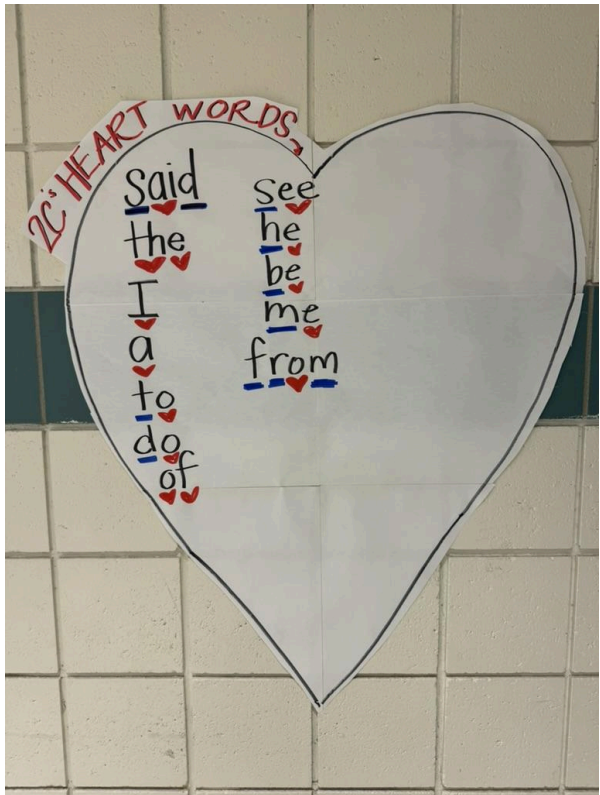 2C's HEART WORDS
said
the
I
a
to
do
of
see
he
be
me
from